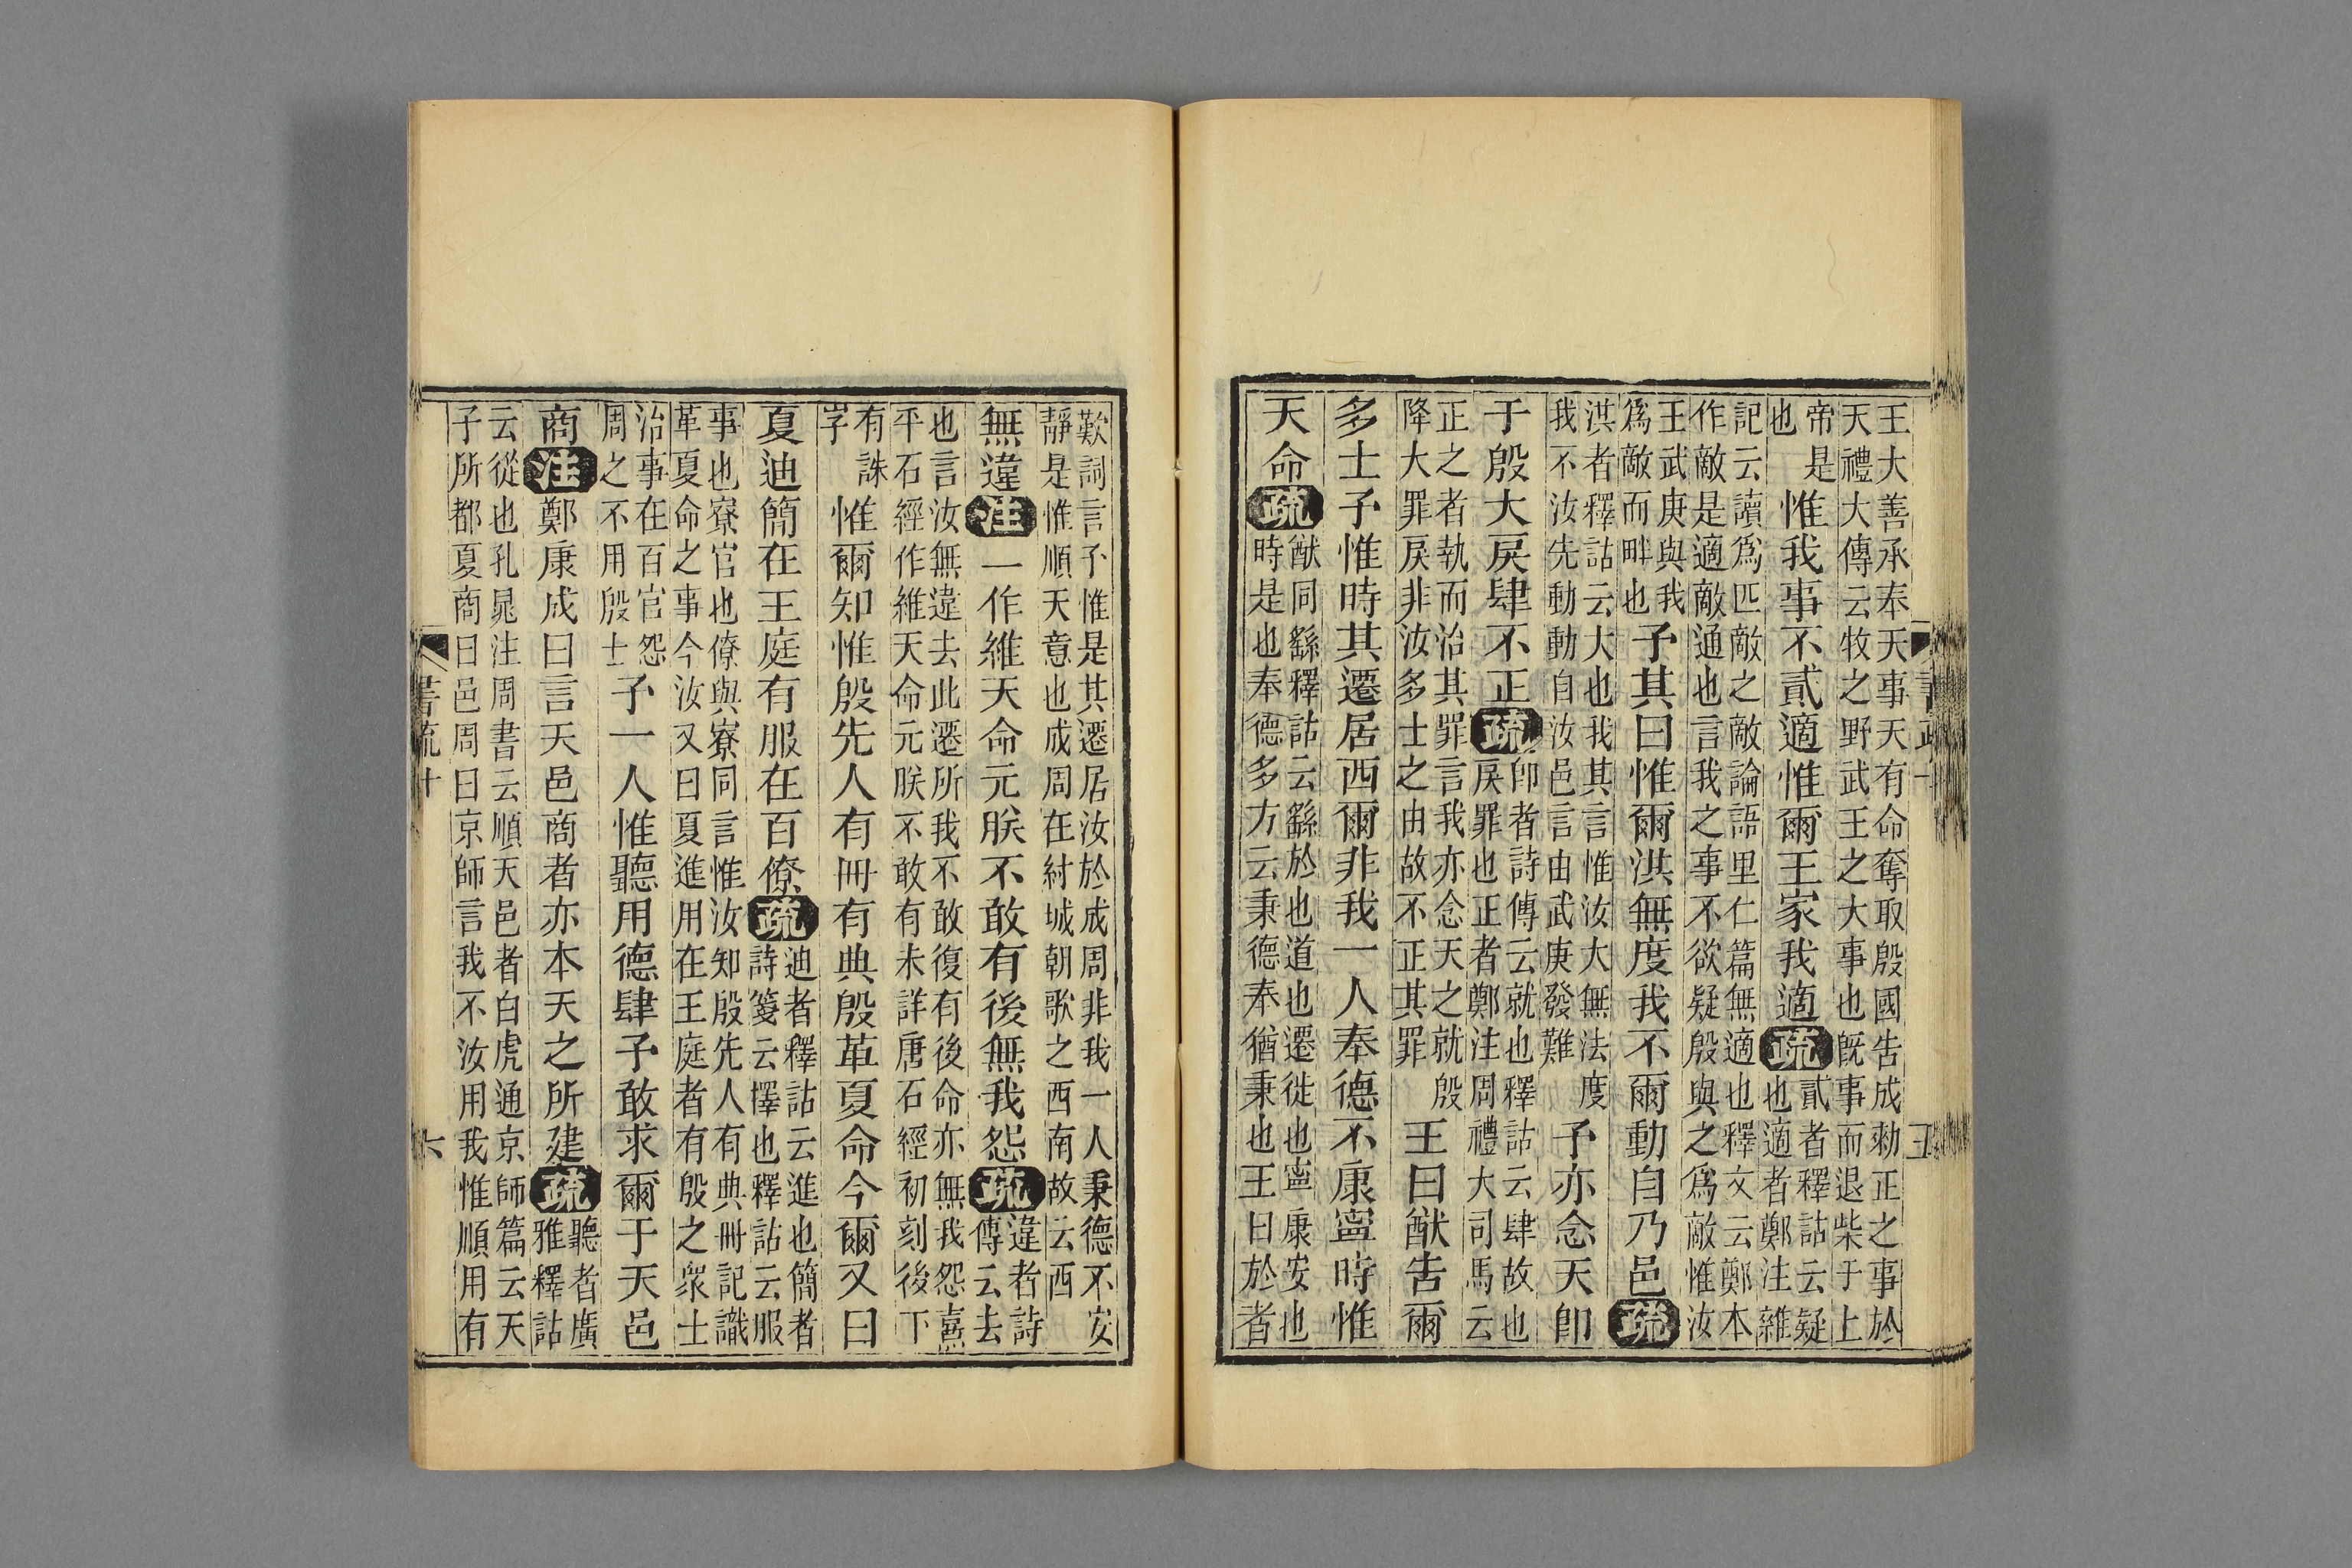 王大善承奉天事天有命奪取殷國告成勑正之事於
天禮大傳云牧之野武王之大事也既事而退柴于上
帝是
也
惟我事不貳適惟爾王家我適疏
貳者釋詁云疑
也適者鄭注雜
記云讀爲匹敵之敵論語里仁篇無適也釋文云鄭本
作敵是適敵通也言我之事不欲疑殷與之爲敵惟汝
王武庚與我
爲敵而畔也
予其曰惟爾洪無度我不爾動自乃邑疏
洪者釋詁云大也我其言惟汝大無法度
我不汝先動動自汝邑言由武庚發難
予亦念天卽
于殷大戾肆不正疏
卽者詩傳云就也釋詁云肆故也
戾罪也正者鄭注周禮大司馬云
正之者執而治其罪言我亦念天之就殷
降大罪戾非汝多士之由故不正其罪
王曰猷告爾
多士予惟時其遷居西爾非我一人奉德不康寧時惟
天命疏
猷同繇釋詁云繇於也道也遷徙也寧康安也
時是也奉德多方云秉德奉猶秉也王曰於者
歎詞言予惟是其遷居汝於成周非我一人秉德不安
靜是惟順天意也成周在紂城朝歌之西南故云西
無違注一作維天命元朕不敢有後無我怨疏
違者詩
傳云去
也言汝無違去此遷所我不敢復有後命亦無我怨熹
平石經作維天命元朕不敢有未詳唐石經初刻後下
有誅
字
惟爾知惟殷先人有冊有典殷革夏命今爾又曰
夏迪簡在王庭有服在百僚疏
迪者釋詁云進也簡者
詩箋云擇也釋詁云服
事也寮官也僚與寮同言惟汝知殷先人有典冊記識
革夏命之事今汝又曰夏進用在王庭者有殷之衆士
治事在百官怨
周之不用殷士
予一人惟聽用德肆予敢求爾于天邑
商注鄭康成曰言天邑商者亦本天之所建疏
聽者廣
雅釋詁
云從也孔晁注周書云順天邑者白虎通京師篇云天
子所都夏商曰邑周曰京師言我不汝用我惟順用有
書疏十
六